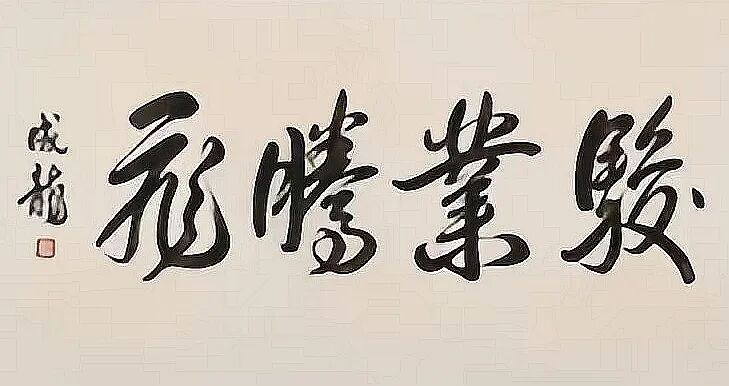 駿業騰飛
成龍